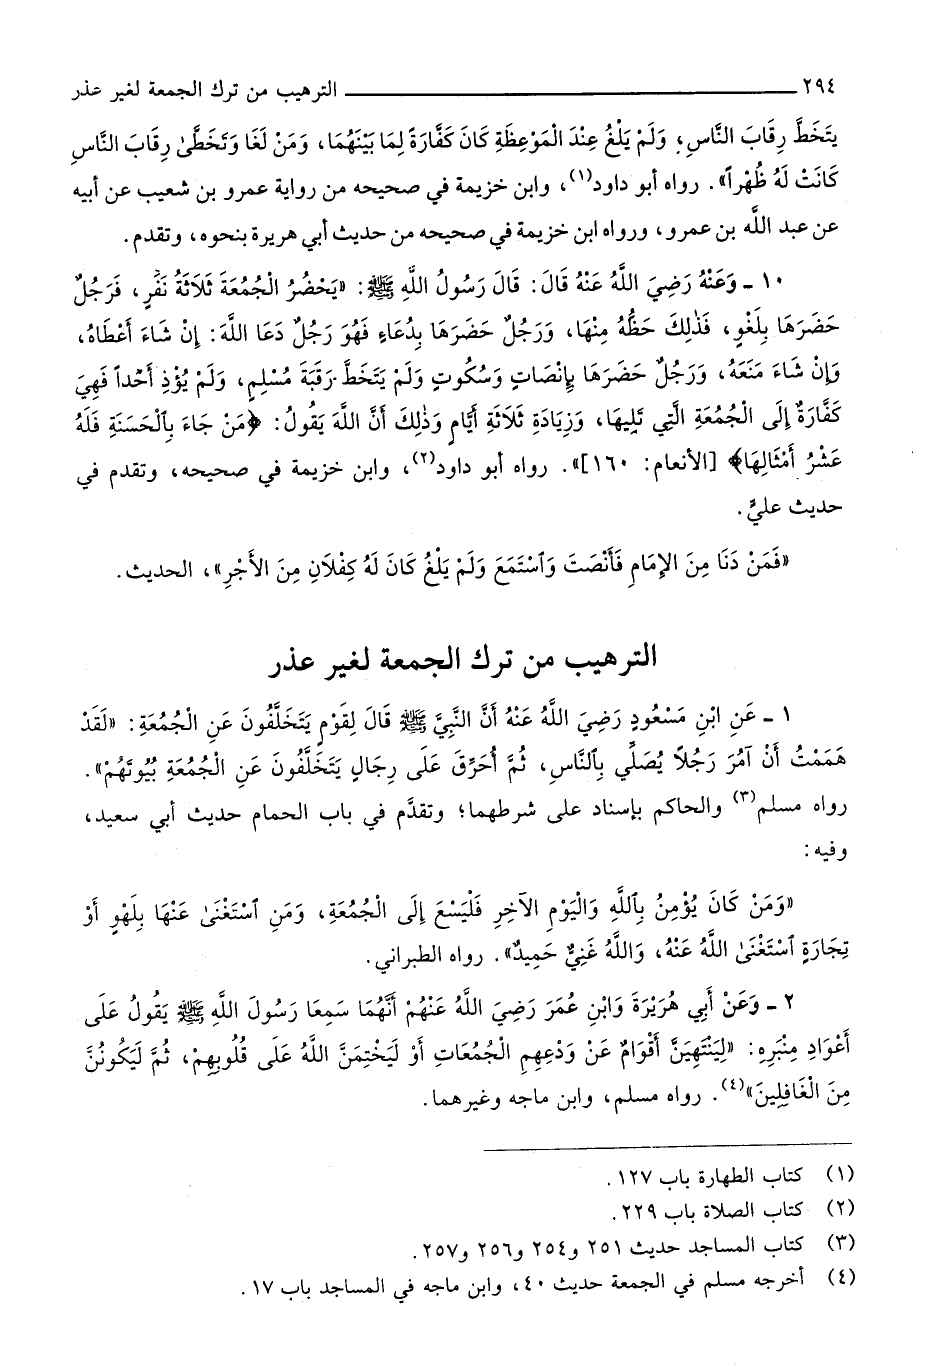 ٢٩٤ ــــــــــــــ الترهيب من ترك الجمعة لغير عذر
يتَخَطَّ رِقَابَ النَّاسِ، وَلَمْ يَلْغُ عِنْدَ الْمَوْعِظَةِ كَانَ كَفَّارَةً لِمَا بَيْنَهُمَا، وَمَنْ لَغَا وَتَخَطَّىٰ رِقَابَ النَّاسِ
كَانَتْ لَهُ ظُهْراً». رواه أبو داود(١)، وابن خزيمة في صحيحه من رواية عمرو بن شعيب عن أبيه
عن عبد اللَّه بن عمرو، ورواه ابن خزيمة في صحيحه من حديث أبي هريرة بنحوه، وتقدم.
١٠ ـ وَعَنْهُ رَضِيَ اللَّهُ عَنْهُ قَالَ: قَالَ رَسُولُ اللَّهِ ﷺ: «يَحْضُرُ الْجُمُعَةَ ثَلاَثَةُ نَفَرٍ، فَرَجُلٌ
حَضَرَهَا بِلَغْوٍ، فَذٰلِكَ حَظُّهُ مِنْهَا، وَرَجُلٌ حَضَرَهَا بِدُعَاءٍ فَهُوَ رَجُلٌ دَعَا اللَّهَ: إِنْ شَاءَ أَعْطَاهُ،
وَإِنْ شَاءَ مَنَعَهُ، وَرَجُلٌ حَضَرَهَا بِإِنْصَاتٍ وَسُكُوتٍ وَلَمْ يَتَخَطَّ رَقَبَةَ مُسْلِمٍ، وَلَمْ يُؤْذِ أَحْداً فَهِيَ
كَفَّارَةٌ إِلَى الْجُمُعَةِ الَّتِي تَلِيهَا، وَزِيَادَةِ ثَلاَثَةِ أَيَّامٍ وَذٰلِكَ أَنَّ اللَّهَ يَقُولُ: ﴿مَنْ جَاءَ بِٱلْحَسَنَةِ فَلَهُ
عَشْرُ أَمْثَالِهَا﴾ [الأنعام: ١٦٠]». رواه أبو داود(٢)، وابن خزيمة في صحيحه، وتقدم في
حديث عليٍّ.
«فَمَنْ دَنَا مِنَ الإِمَامِ فَأَنْصَتَ وَٱسْتَمَعَ وَلَمْ يَلْغُ كَانَ لَهُ كِفْلاَنِ مِنَ الأَجْرِ»، الحديث.
الترهيب من ترك الجمعة لغير عذر
١ ـ عَنِ ابْنِ مَسْعُودٍ رَضِيَ اللَّهُ عَنْهُ أَنَّ النَّبِيَّ ﷺ قَالَ لِقَوْمٍ يَتَخَلَّفُونَ عَنِ الْجُمُعَةِ: «لَقَدْ
هَمَمْتُ أَنْ آمُرَ رَجُلاً يُصَلِّي بِٱلنَّاسِ، ثُمَّ أُحَرِّقَ عَلَى رِجَالٍ يَتَخَلَّفُونَ عَنِ الْجُمُعَةِ بُيُوتَهُمْ».
رواه مسلم(٣) والحاكم بإسناد على شرطهما؛ وتقدَّم في باب الحمام حديث أبي سعيد،
وفيه:
«وَمَنْ كَانَ يُؤْمِنُ بِٱللَّهِ وَالْيَوْمِ الآخِرِ فَلْيَسْعَ إِلَى الْجُمُعَةِ، وَمَنِ ٱسْتَغْنَىٰ عَنْهَا بِلَهْوٍ أَوْ
تِجَارَةٍ ٱسْتَغْنَىٰ اللَّهُ عَنْهُ، وَاللَّهُ غَنِيٌّ حَمِيدٌ». رواه الطبراني.
٢ ـ وَعَنْ أَبِي هُرَيْرَةَ وَابْنِ عُمَرَ رَضِيَ اللَّهُ عَنْهُمْ أَنَّهُمَا سَمِعَا رَسُولَ اللَّهِ ﷺ يَقُولُ عَلَى
أَعْوَادِ مِنْبَرِهِ: «لِيَنْتَهِيَنَّ أَقْوَامٌ عَنْ وَدْعِهِمِ الْجُمُعَاتِ أَوْ لَيَخْتِمَنَّ اللَّهُ عَلَى قُلُوبِهِمْ، ثُمَّ لَيَكُونُنَّ
مِنَ الْغَافِلِينَ»(٤). رواه مسلم، وابن ماجه وغيرهما.
(١) كتاب الطهارة باب ١٢٧.
(٢) كتاب الصلاة باب ٢٢٩.
(٣) كتاب المساجد حديث ٢٥١ و٢٥٤ و٢٥٦ و٢٥٧.
(٤) أخرجه مسلم في الجمعة حديث ٤٠، وابن ماجه في المساجد باب ١٧.